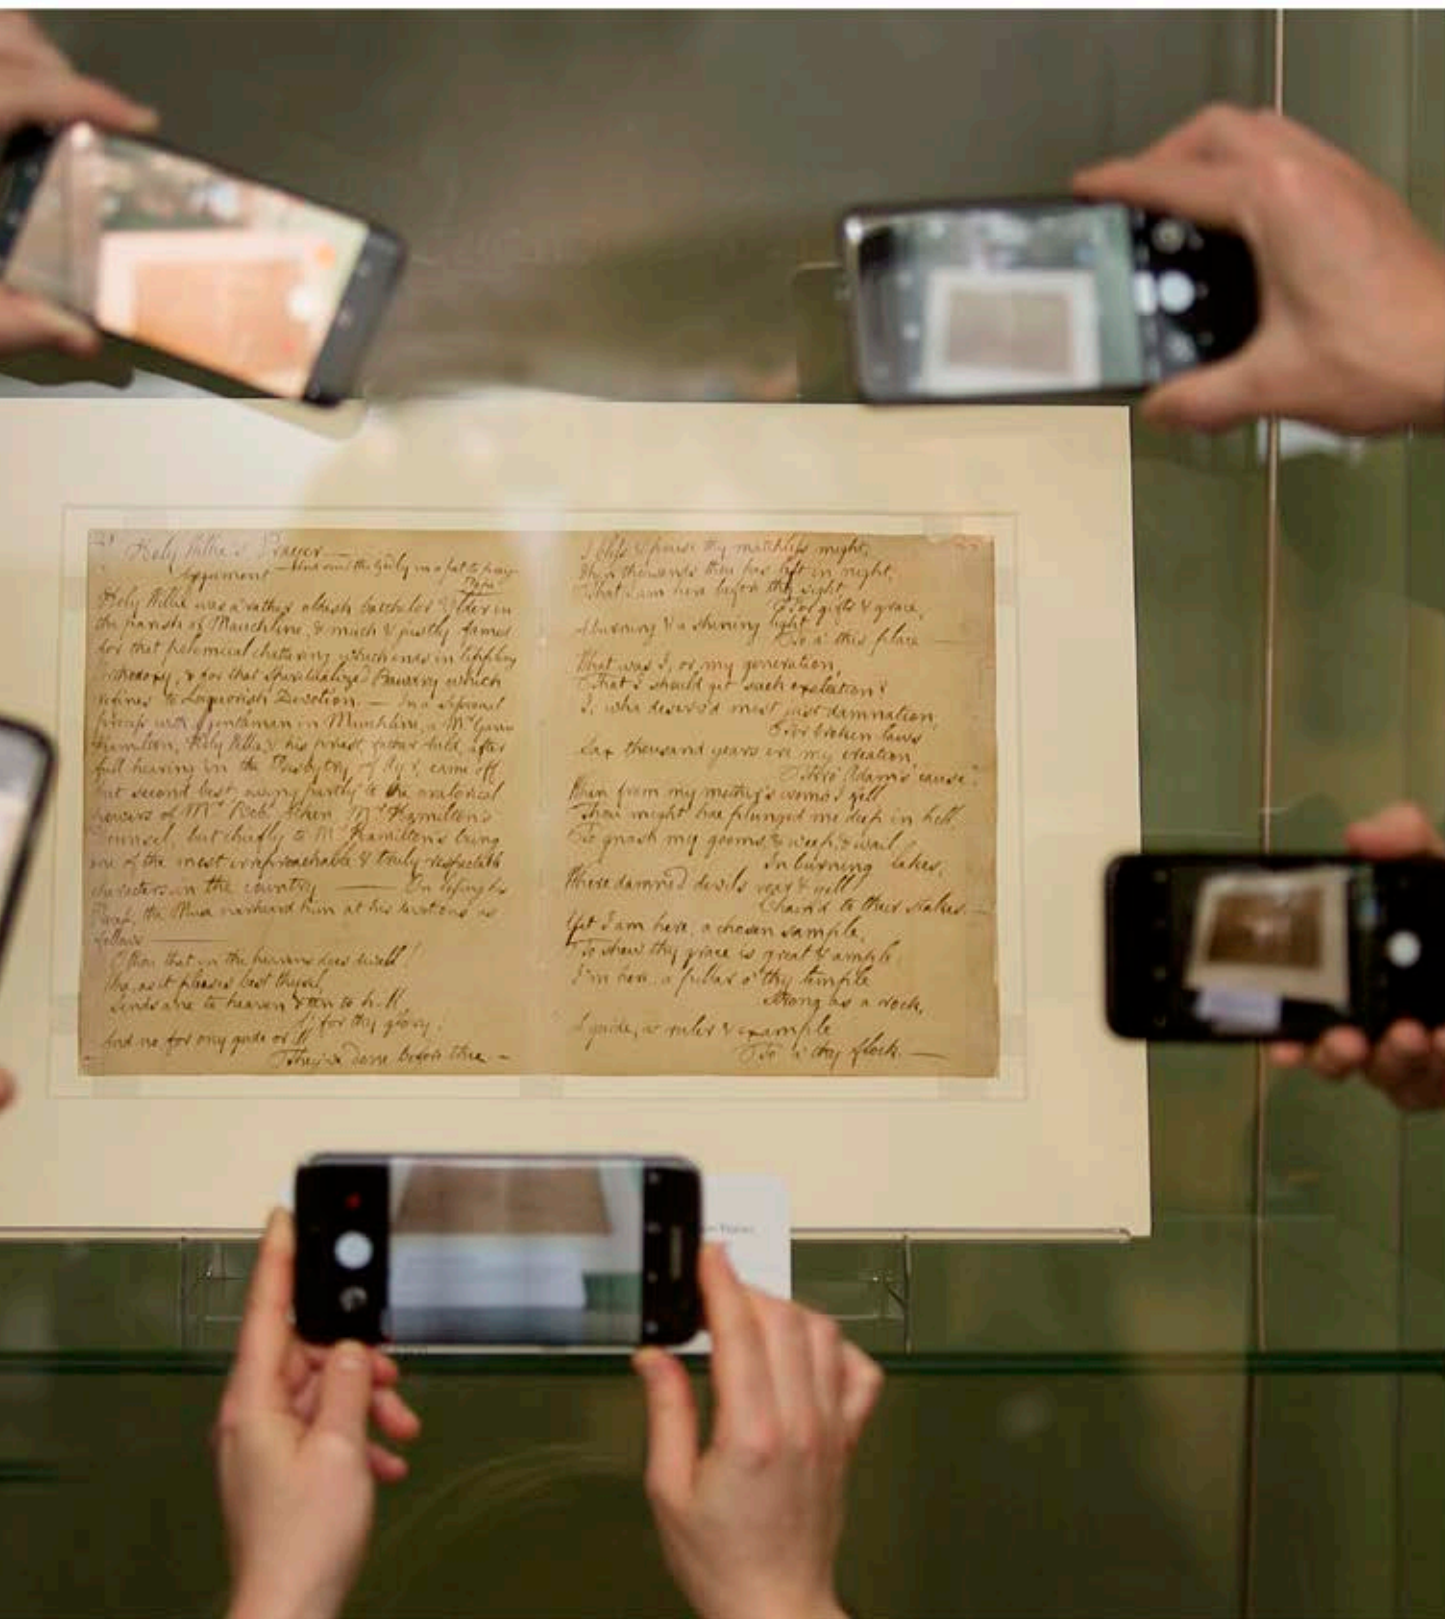 Holy Willie's Prayer —
Argument — And send the Godly in a pet to pray —
Pope
Holy Willie was a rather oldish bachelor Elder in
the parish of Mauchline, & much & justly famed
for that polemical chattering which ends in tippling
Orthodoxy, & for that Spiritualized Bawdry which
refines to Liquorish Devotion. — In a Sessional
process with a gentleman in Mauchline, a Mr Gavin
Hamilton, Holy Willie, & his priest, father Auld, after
full hearing in the Presbytry of Ayr, came off
but second best, owing partly to the oratorical
powers of Mr Robt Aiken, Mr Hamilton's
Counsel, but chiefly to Mr Hamilton's being
one of the most irreproachable & truly respectable
characters in the country — On losing his
Process, the Muse overheard him at his devotions as
follows —
O thou that in the heavens does dwell!
Wha, as it pleases best thysel,
Sends ane to heaven & ten to h-ll,
A' for thy glory!
And no for ony gude or ill
They've done before thee. —
I bless & praise thy matchless might,
Whan thousands thou has left in night,
That I am here before thy sight,
For gifts & grace,
A burning & a shining light
To a' this place —
What was I, or my generation,
That I should get such exaltation?
I, wha deserv'd most just damnation,
For broken laws
Sax thousand years ere my creation,
Thro' Adam's cause!
When from my mother's womb I fell,
Thou might hae plunged me deep in hell,
To gnash my gooms, & weep, & wail,
In burning lakes,
Where damned devils roar & yell
Chain'd to their stakes. —
Yet I am here, a chosen sample,
To shew thy grace is great & ample:
I'm here, a pillar o' thy temple
Strong as a rock,
A guide, a ruler & example
To a' thy flock. —